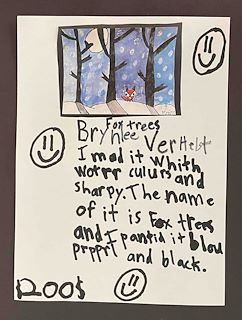 Fox trees
Brynlee VerHelst
I mad it whith
wotrr culurs and
sharpy. The name
of it is Fox trers
and I pantid it blou
prpprt and black.
R005